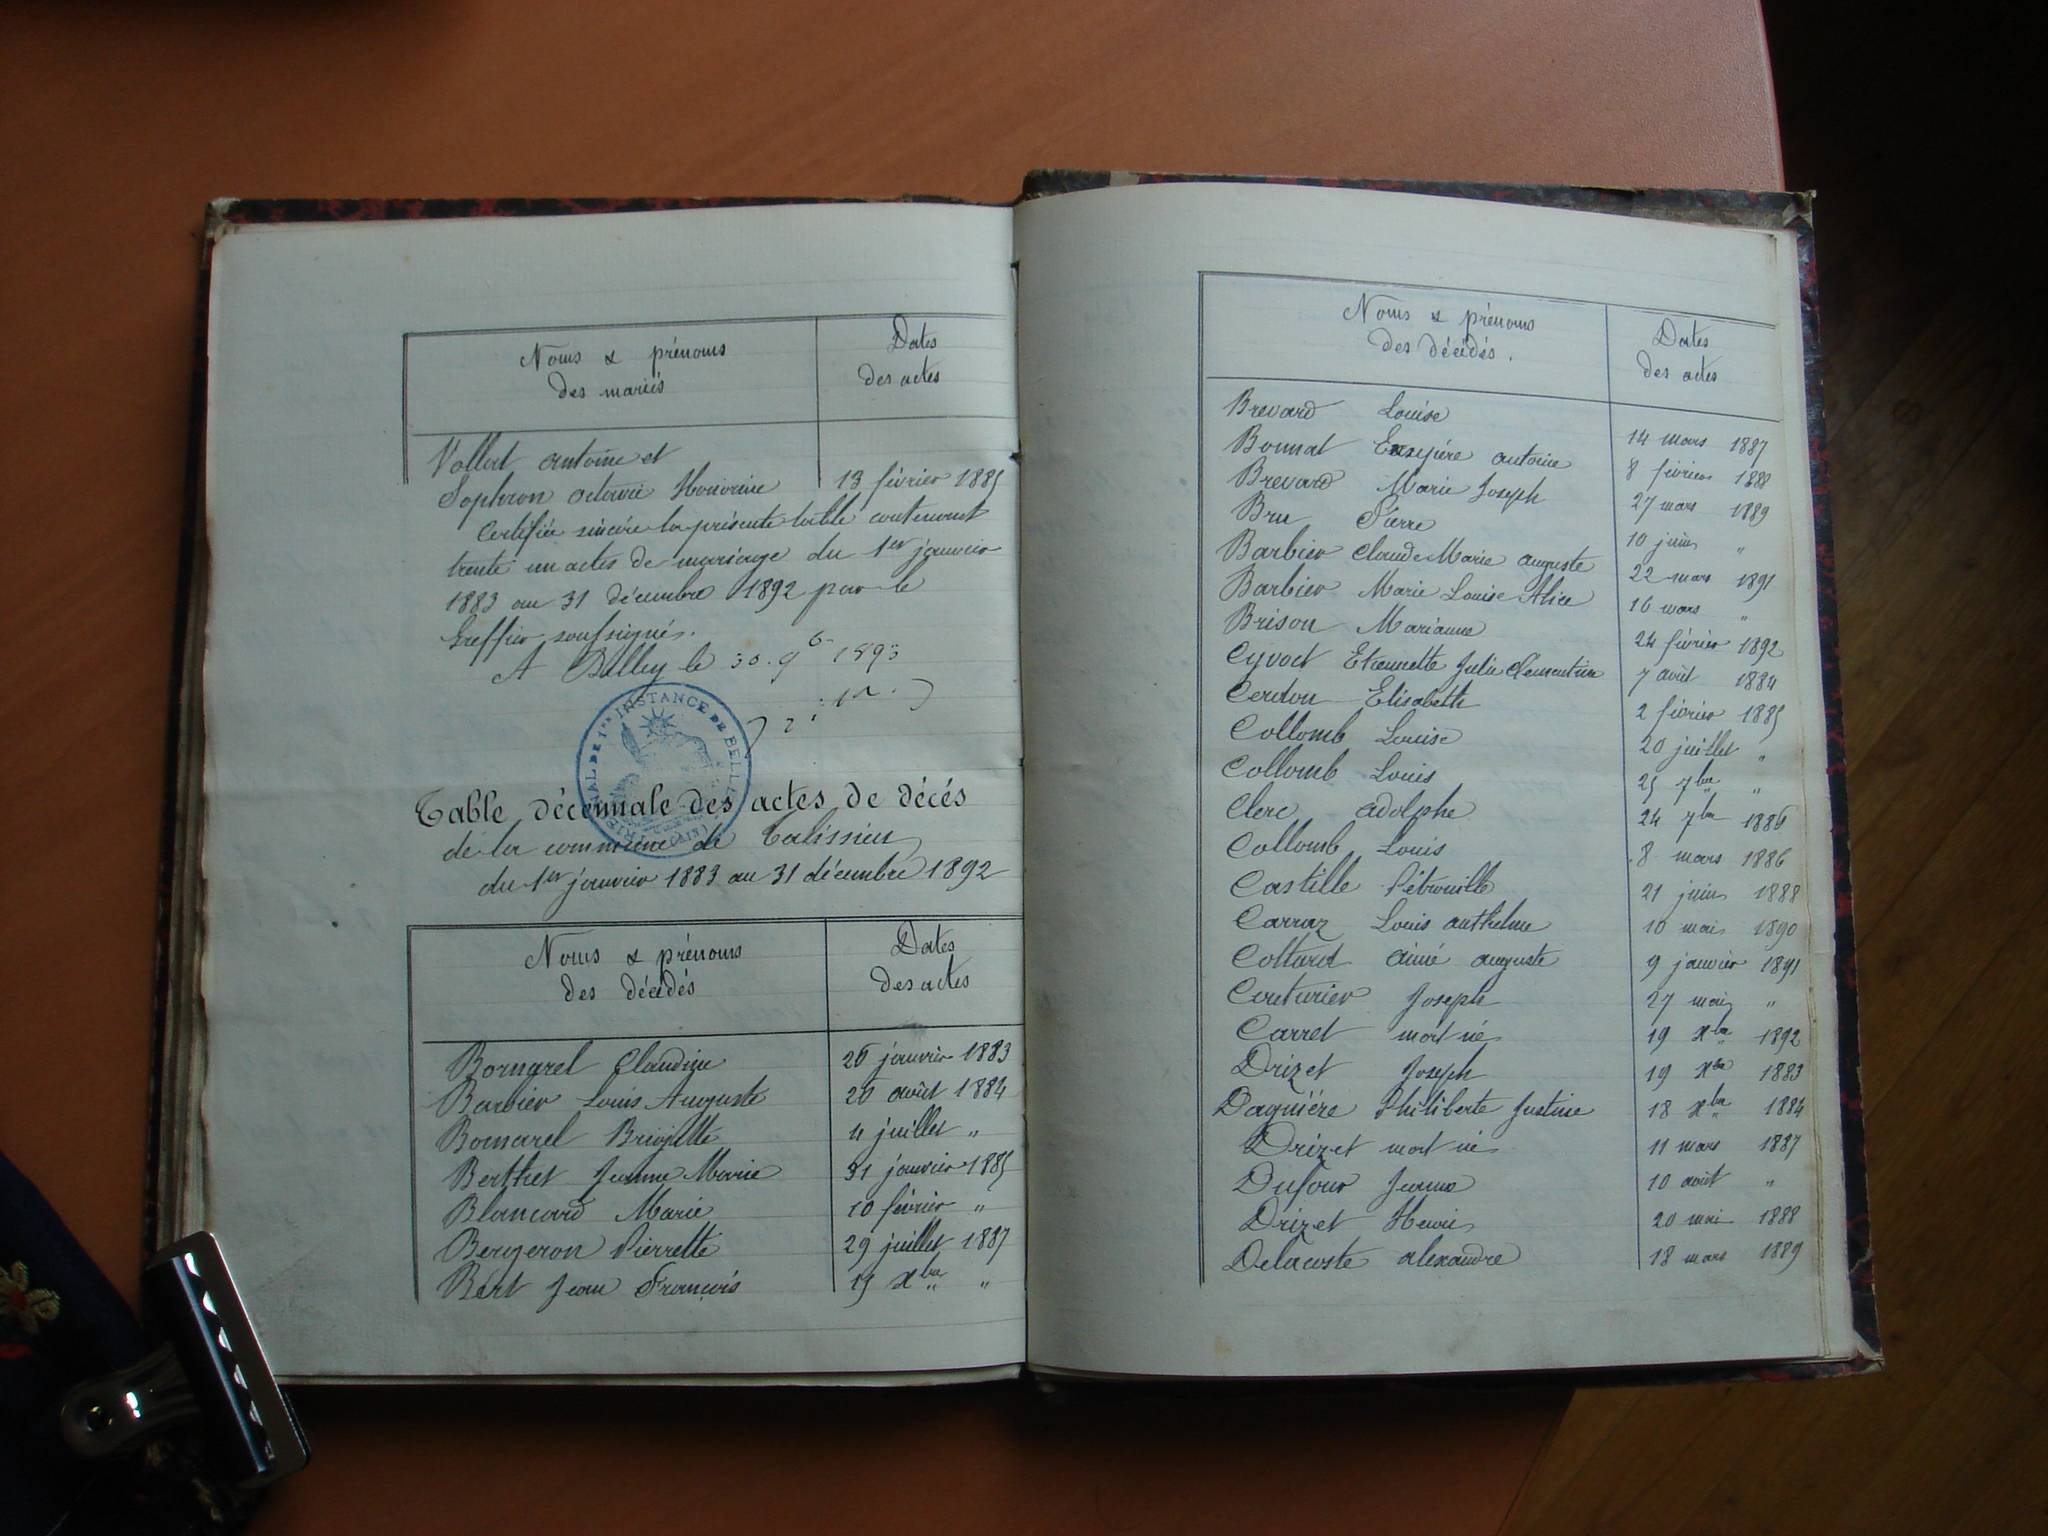 Noms & prénoms
des mariés
Dates
des actes
Vollet antoine et
Sophron octavie Honorine 13 février 1885
Certifiée sincère la présente table contenant
trente un actes de mariage du 1er janvier
1883 au 31 décembre 1892 par le
Greffier soussigné.
A Belley le 30. 9b 1893
TRIBUNAL DE 1re INSTANCE DE BELLEY (AIN)
Table décennale des actes de décès
de la commune de Talissieu
du 1er janvier 1883 au 31 décembre 1892
Noms & prénoms
des décédés
Dates
des actes
Bornarel Claudine 26 janvier 1883
Barbier Louis Auguste 26 août 1884
Bornarel Brigitte 4 juillet "
Berthet Jeanne Marie 31 janvier 1885
Blancard Marie 10 février "
Bergeron Pierrette 29 juillet 1887
Bert Jean François 15 xbre "
Noms & prénoms
des décédés.
Dates
des actes
Brevard Louise 14 mars 1887
Bonnat Exupère antoine 8 février 1888
Brevard Marie Joseph 27 mars 1889
Bru Pierre 10 juin "
Barbier Claude Marie auguste 22 mars 1891
Barbier Marie Louise Alice 16 mars "
Brison Marianne 24 février 1892
Cyvoct Etiennette Julie Clementine 7 août 1884
Cerdon Elisabeth 2 février 1885
Collomb Louise 20 juillet "
Collomb Louis 25 7bre "
Clerc adolphe 24 7bre 1886
Collomb Louis 8 mars 1886
Castille Pétronille 21 juin 1888
Carraz Louis anthelme 10 mai 1890
Cottard aimé auguste 9 janvier 1891
Couturier Joseph 27 mai "
Carret mort né 19 xbre 1892
Drizet Joseph 19 xbre 1883
Daguière Philiberte Justine 18 xbre 1884
Drizet mort né 11 mars 1887
Dufour Jeanne 10 août "
Drizet Henri 20 mai 1888
Delacoste alexandre 18 mars 1889